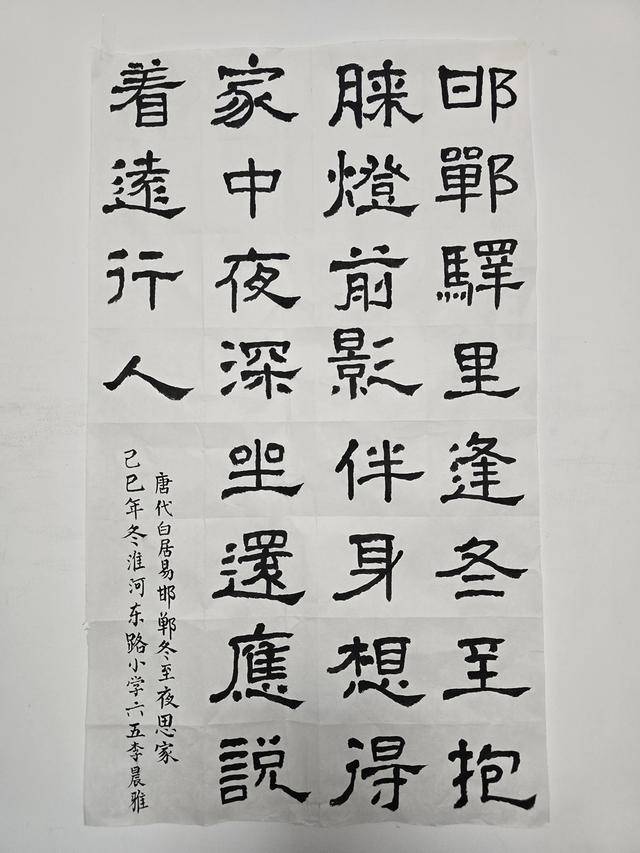 邯鄲驛里逢冬至抱
膝燈前影伴身想得
家中夜深坐還應說
着遠行人
唐代白居易邯郸冬至夜思家
己巳年冬淮河东路小学六五李晨雅